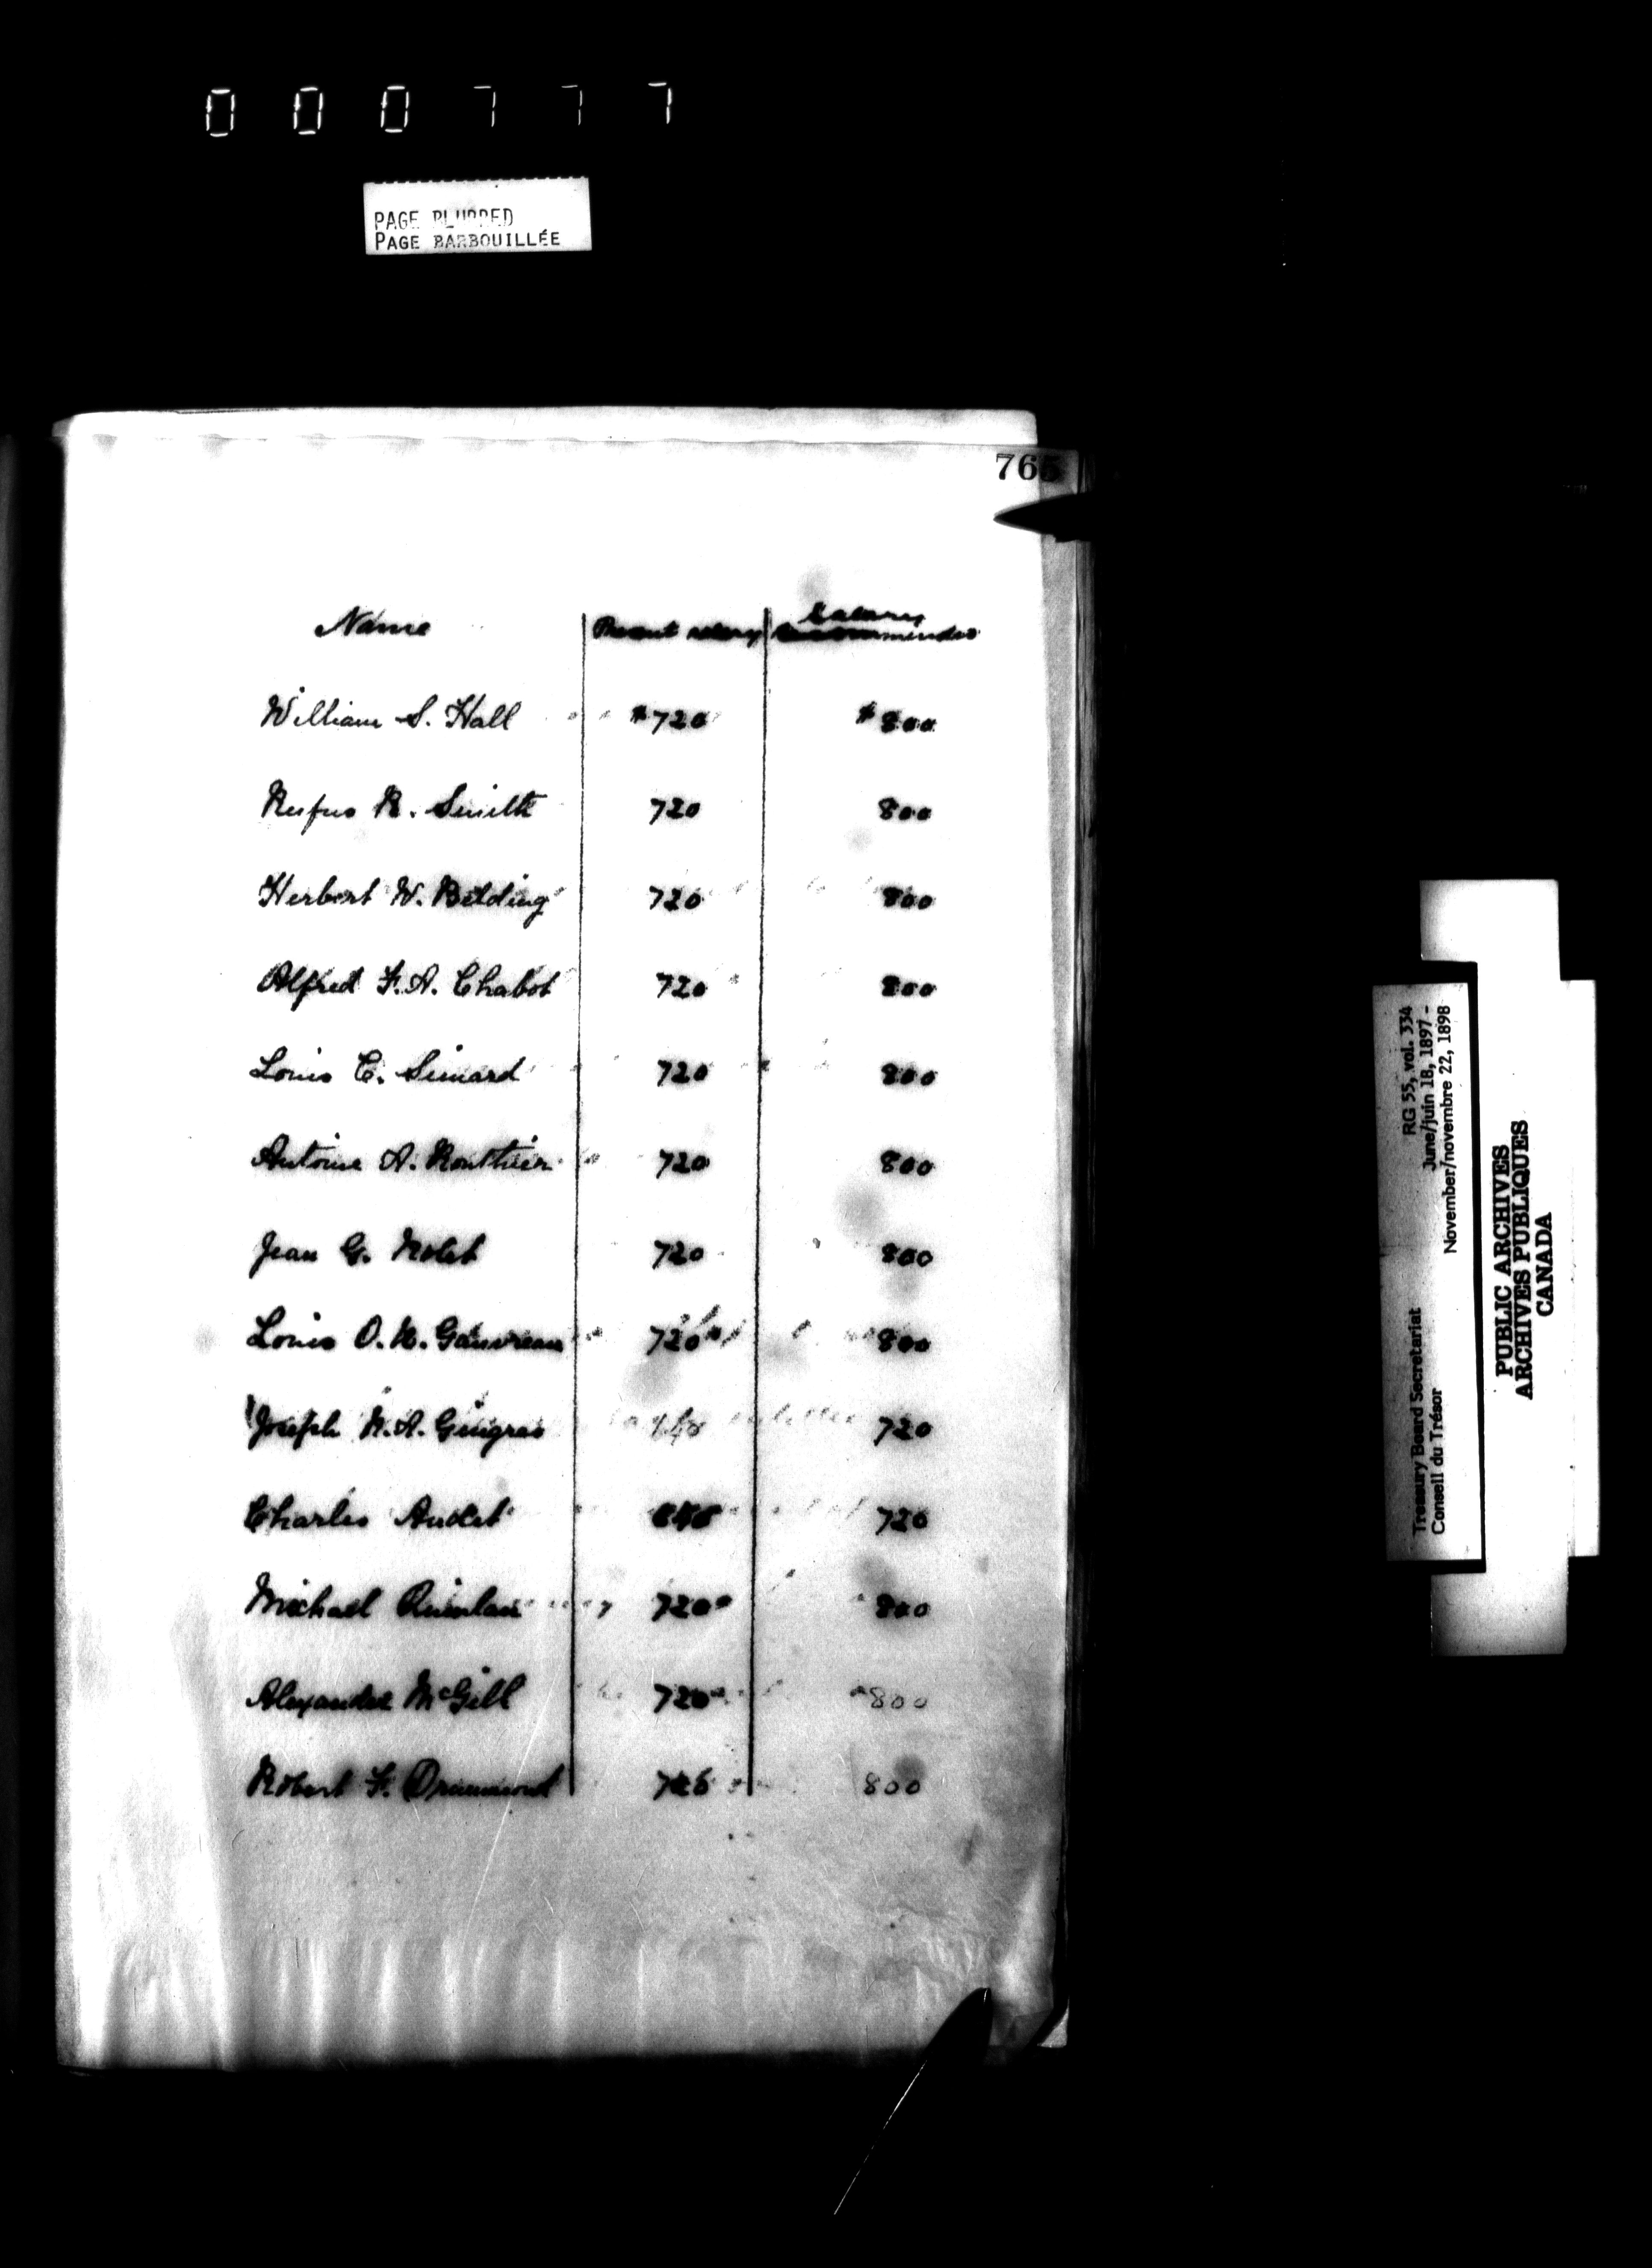 000777
PAGE BLURRED
PAGE BARBOUILLÉE
765
Name Present salary Salary recommended
William S. Hall $720 $800
Rufus R. Smith 720 800
Herbert W. Belding 720 800
Alfred F. A. Chabot 720 800
Louis C. Simard 720 800
Antoine A. Routhier 720 800
Jean G. Nolet 720 800
Louis O. R. Gauvreau 720 800
Joseph N. A. Gingras 720
Charles Audet 720
Michael Quinlan 720 800
Alexander McGill 720 800
Robert F. Drummond 720 800
Treasury Board Secretariat RG 55, vol. 334
Conseil du Trésor June/juin 18, 1897 -
November/novembre 22, 1898
PUBLIC ARCHIVES
ARCHIVES PUBLIQUES
CANADA